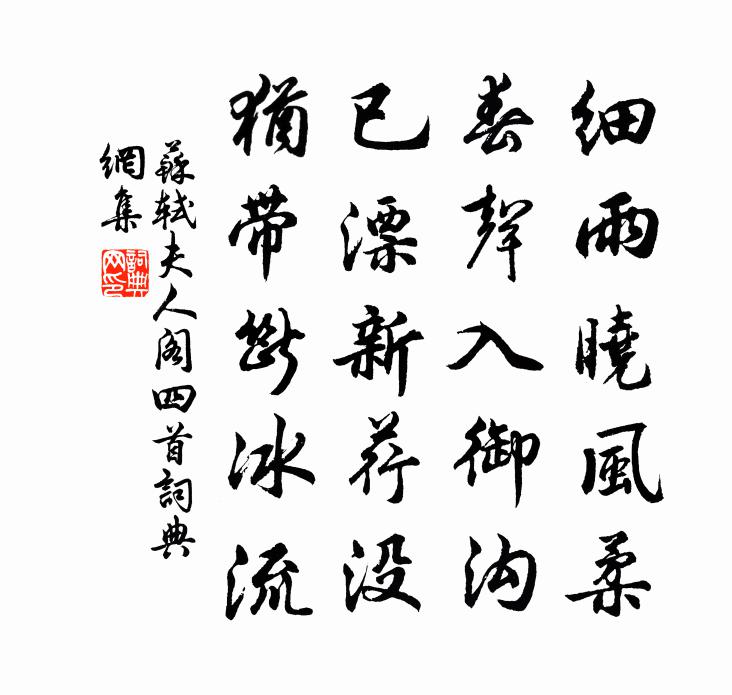 细雨曉風柔
春聲入御沟
已漂新荇没
猶带断冰流
蘇軾夫人阁四首詞典
網集
詞典
网印